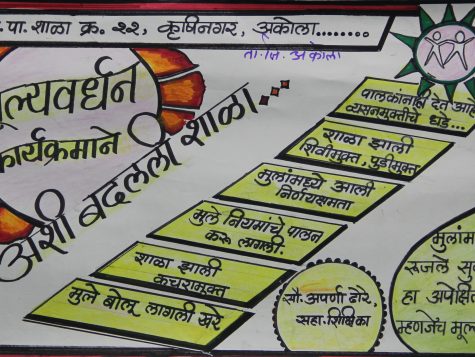 .पा.शाळा क्र.२२, कृषिनगर, अकोला........
ता.जि.अकोला
मूल्यवर्धन
कार्यक्रमाने
अशी बदलली शाळा...
पालकांनाही देते आ
व्यसनमुक्तीचे धडे...
शाळा झाली
शिवीमुक्त, पुडीमुक्त
मुलांमध्ये आली
निर्णयक्षमता
मुले नियमांचे पालन
करू लागली.
शाळा झाली
कचरामुक्त
मुले बोलू लागली खरे
सौ. अपर्णा ढोरे,
सहा. शिक्षिका
मुलांम
रूजले सु
हा अपेक्षि
म्हणजेच मूल